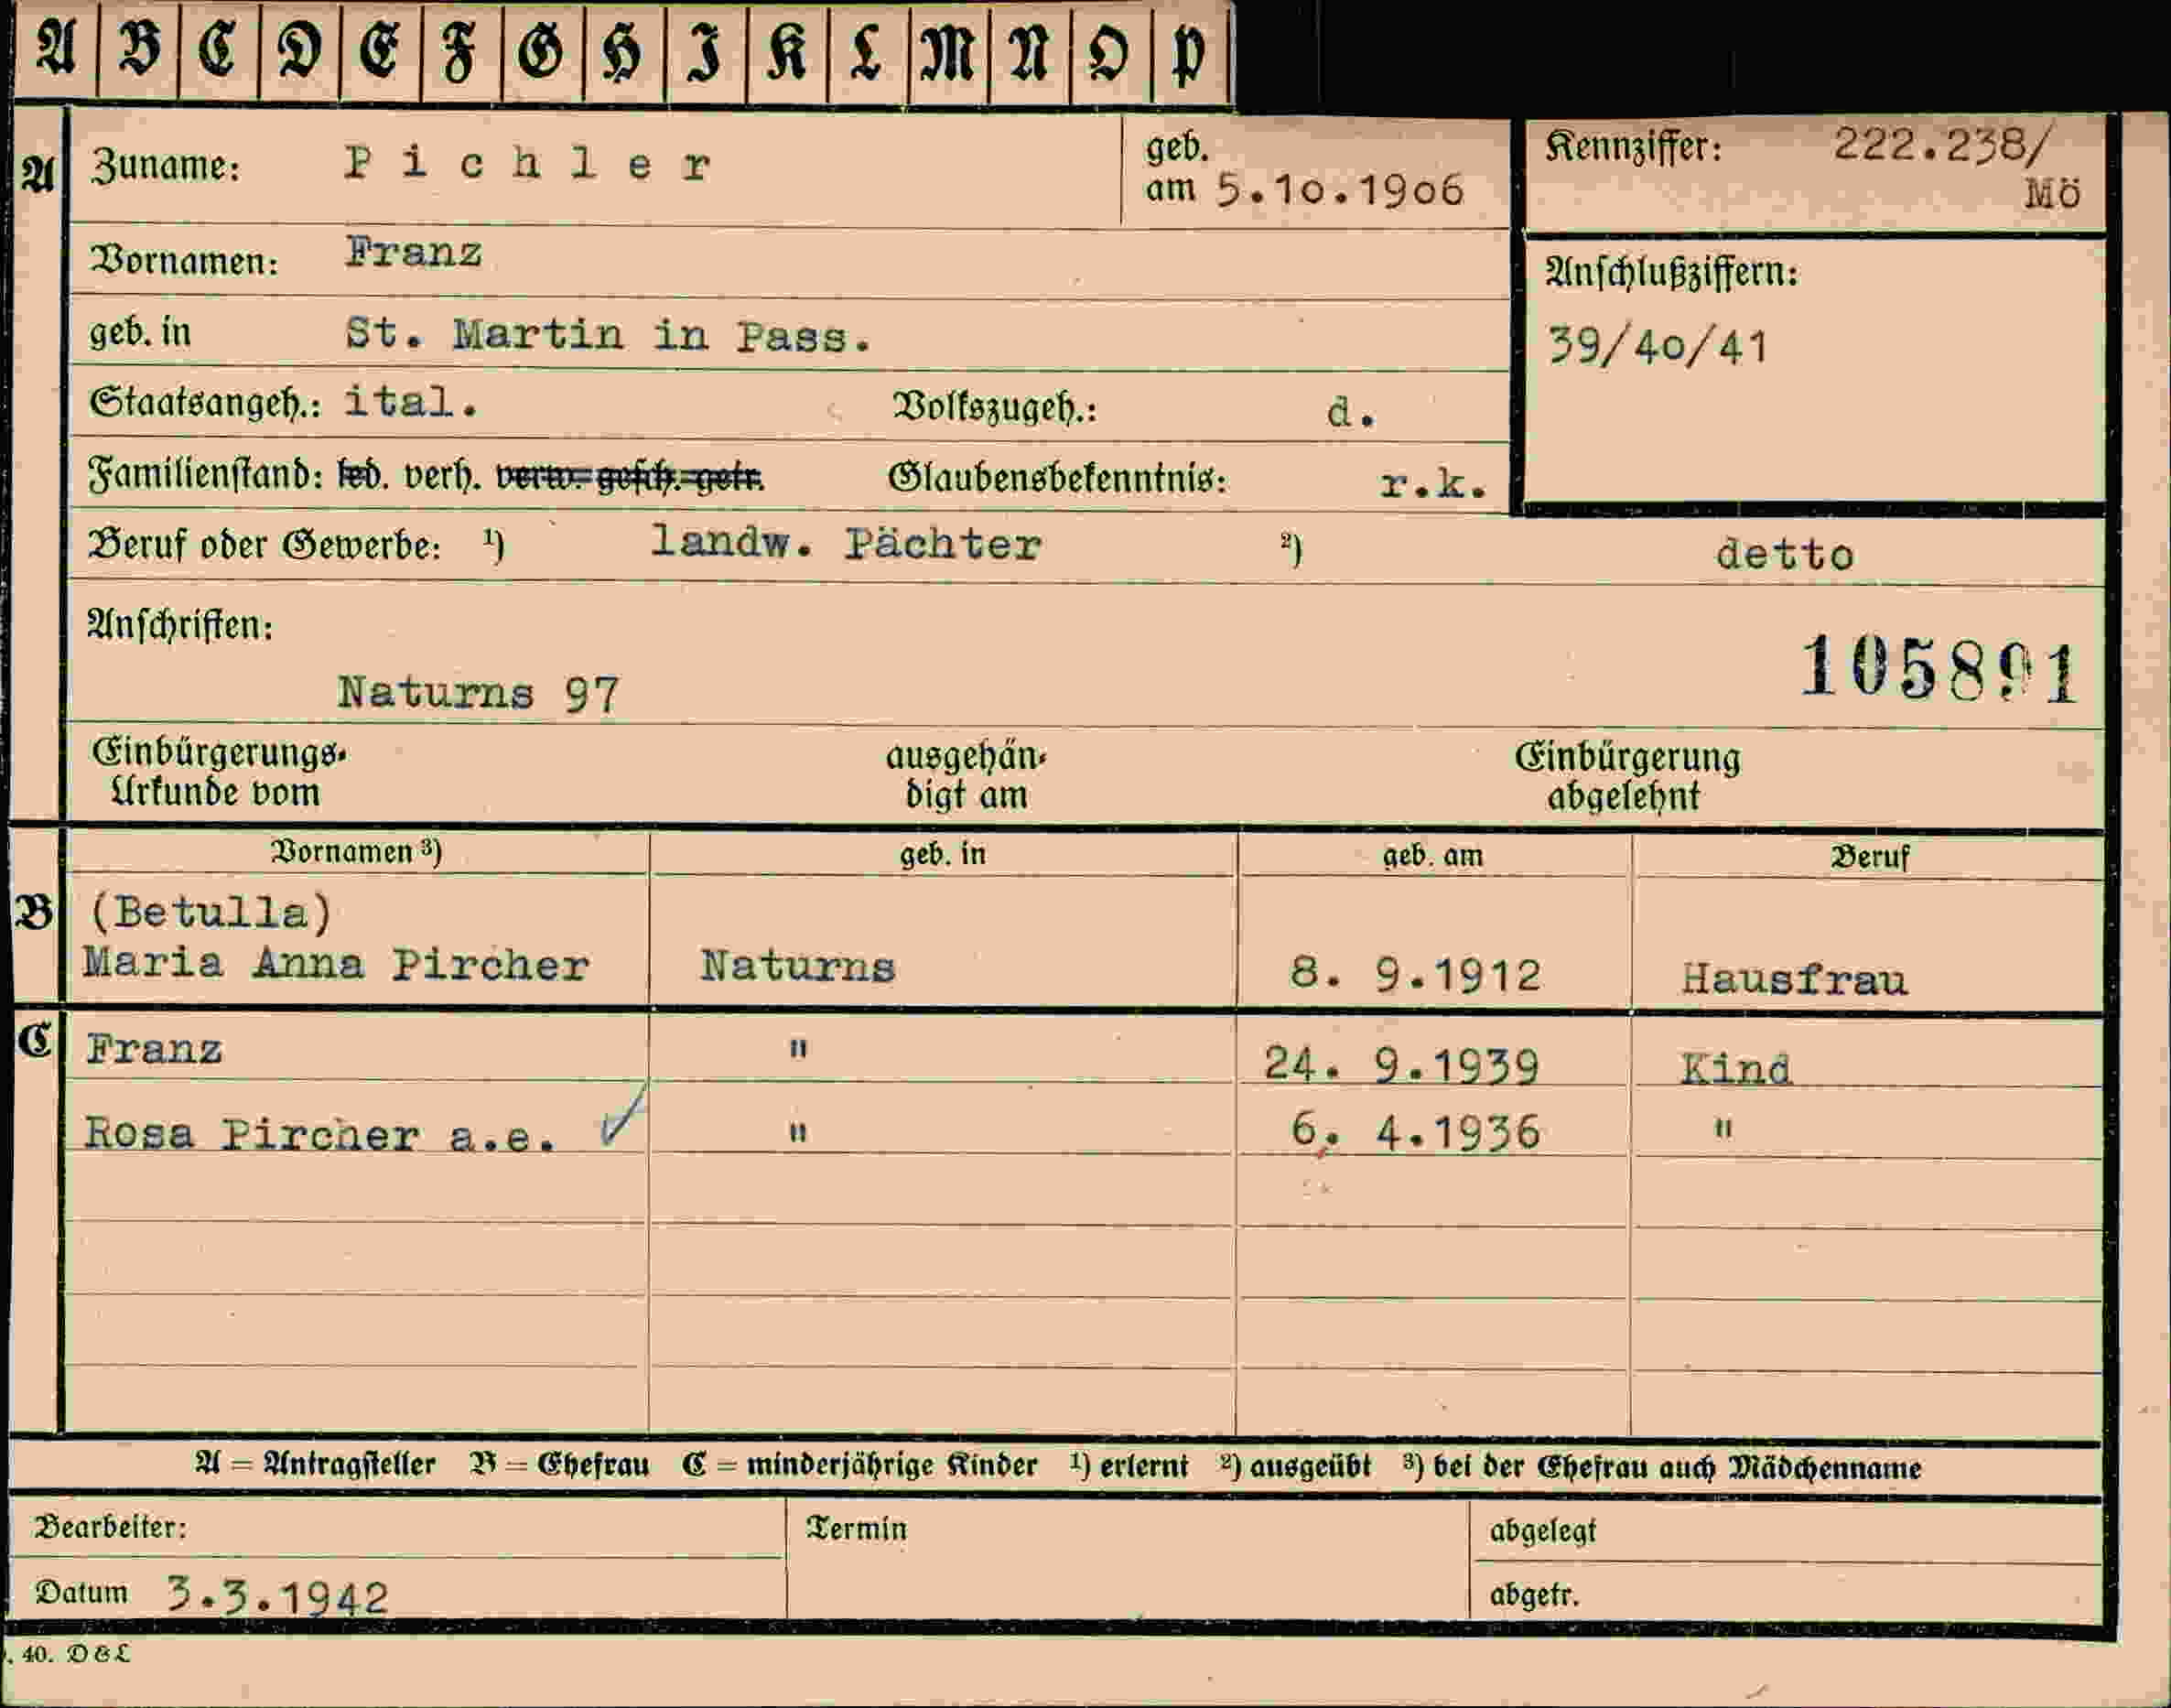 A B C D E F G H I K L M N O P
A Zuname: Pichler geb. am 5.10.1906 Kennziffer: 222.238/ Mö
Vornamen: Franz
Anschlußziffern:
geb. in St. Martin in Pass.
39/40/41
Staatsangeh.: ital. Volkszugeh.: d.
Familienstand: led. verh. verw. gesch. getr. Glaubensbekenntnis: r.k.
Beruf oder Gewerbe: ¹) landw. Pächter ²) detto
Anschriften:
105891
Naturns 97
Einbürgerungs-Urkunde vom ausgehändigt am Einbürgerung abgelehnt
Vornamen ³) geb. in geb. am Beruf
B (Betulla)
Maria Anna Pircher Naturns 8. 9.1912 Hausfrau
C Franz " 24. 9.1939 Kind
Rosa Pircher a.e. ✓ " 6. 4.1936 "
A = Antragsteller B = Ehefrau C = minderjährige Kinder ¹) erlernt ²) ausgeübt ³) bei der Ehefrau auch Mädchenname
Bearbeiter: Termin abgelegt
Datum 3.3.1942 abgetr.
. 40. D & L